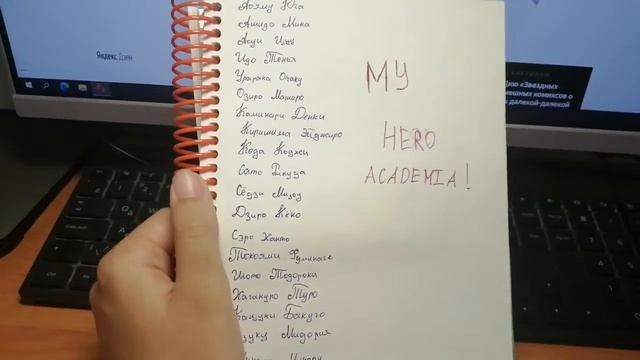 Аояму Юга
Ашидо Мина
Асуи Цую
Идо Тенья
Урарака Очако
Озиро Маширо
Каминари Денки
Киришима Эйджиро
Кода Коджи
Сато
Сёдзи Мизоу
Дзиро Кёко
Сэро Ханто
Токоями Фумикаге
Шото Тодороки
Хагакуро Туро
Кацуки Бакуго
зуку Мидория
MY
HERO
ACADEMIA!
Яндекс Дзен
Дню «Звездных
ешных комиксов о
далекой-далекой